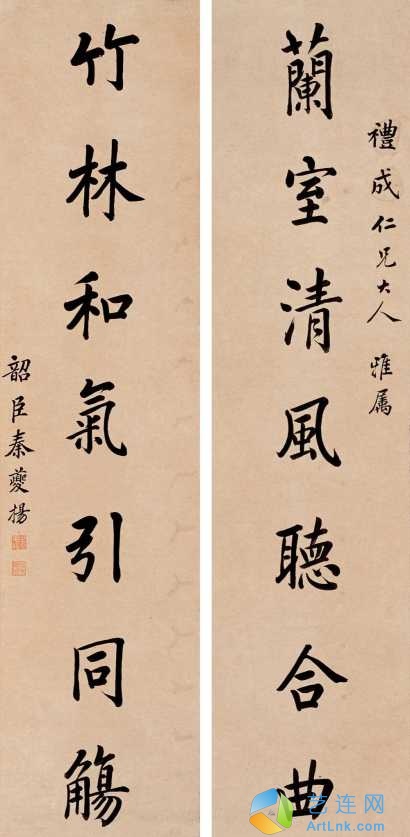 禮成仁兄大人雅屬
蘭室清風聽合曲
竹林和氣引同觴
韶臣秦夔揚
艺连网
ArtLnk.com